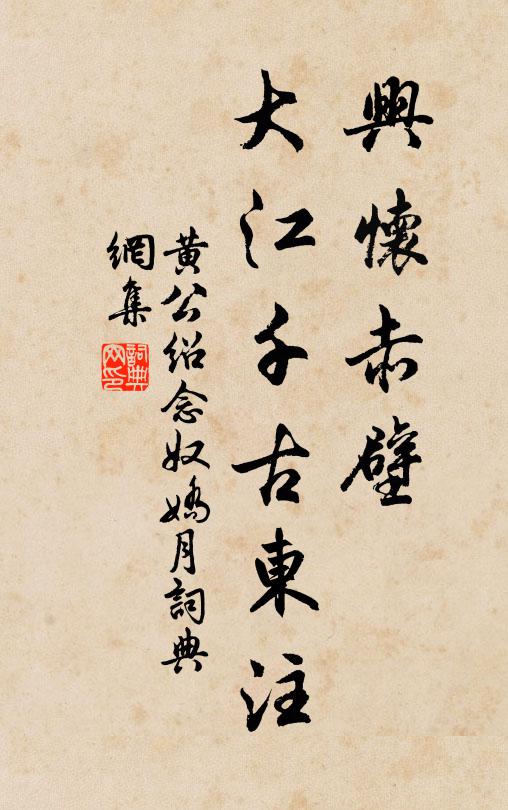 興懷赤壁
大江千古東注
黃公紹念奴嬌月詞典
網集
詞典
网印